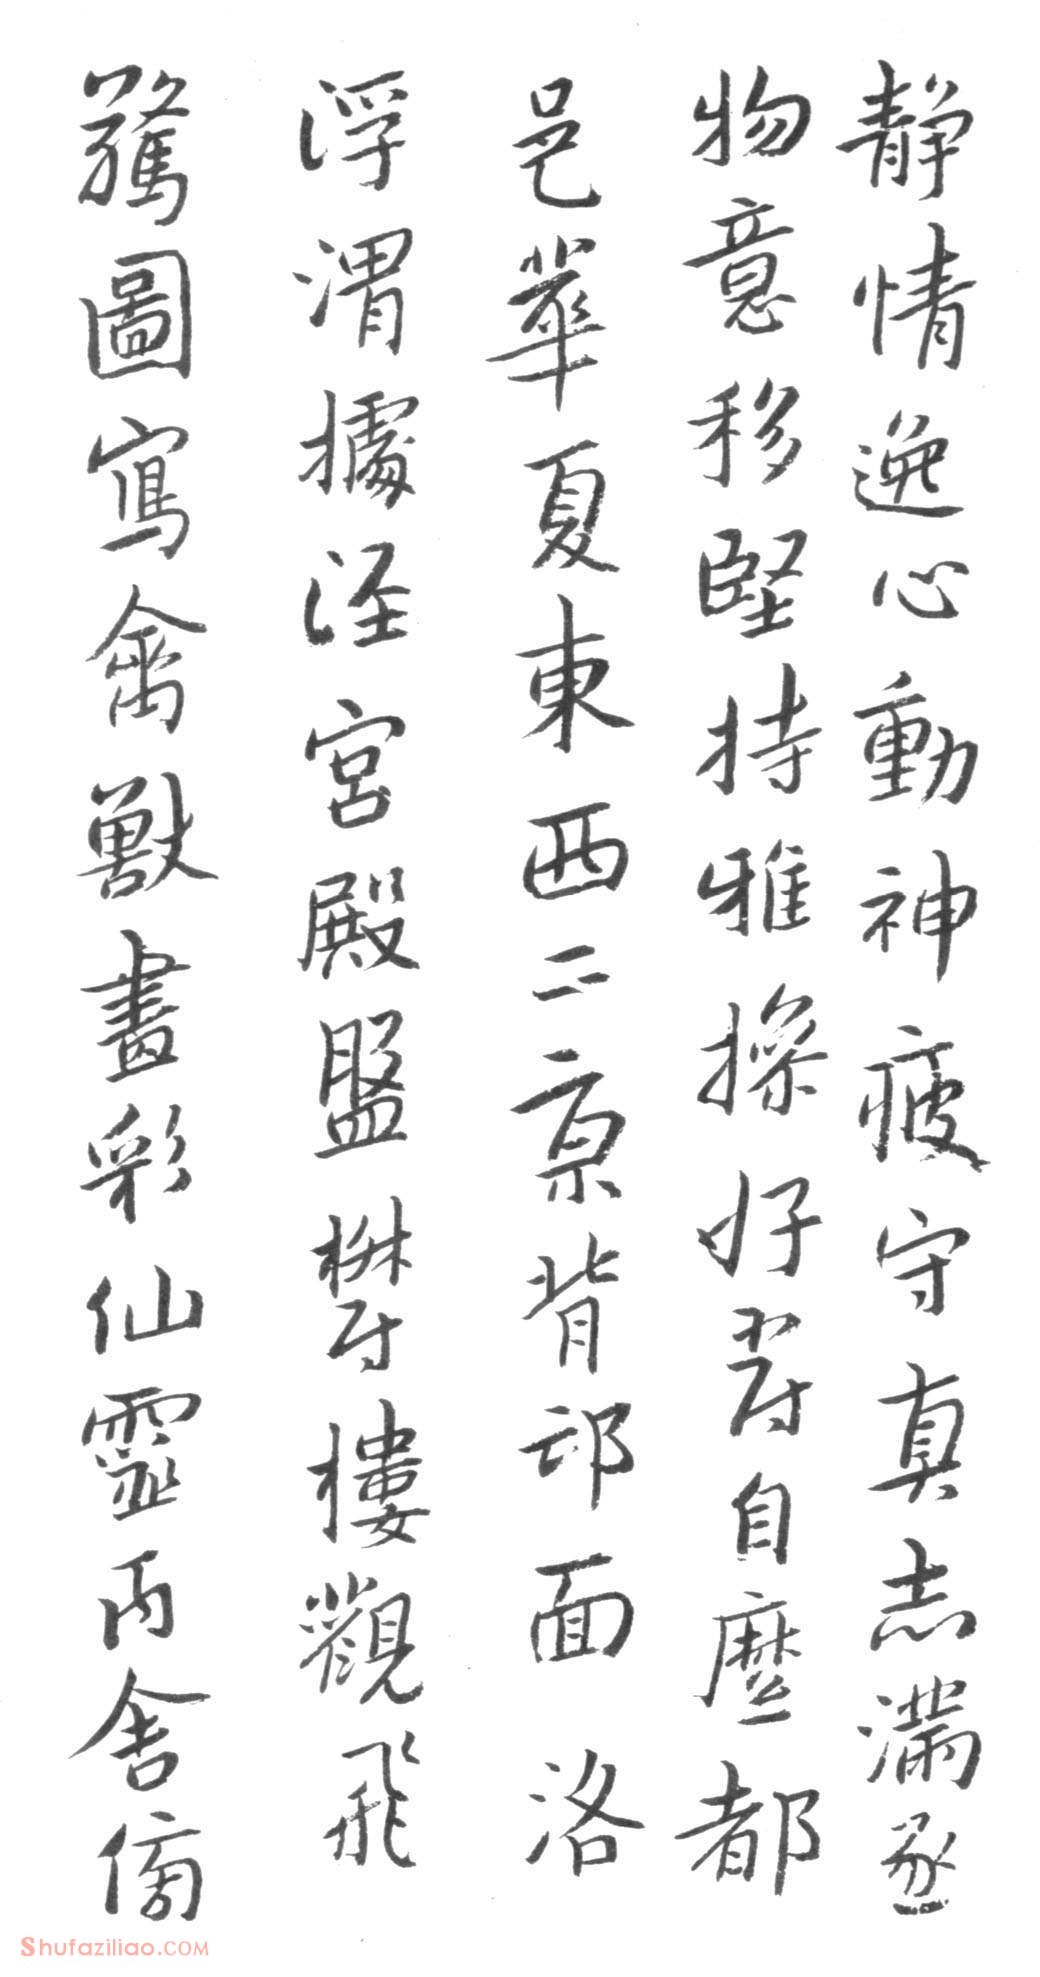 静情逸心動神疲守真志滿逐
物意移堅持雅操好爵自縻都
邑華夏東西二京背邙面洛
浮渭據涇宮殿盤欝樓觀飛
驚圖寫禽獸畫彩仙靈丙舍傍
Shufaziliao.COM